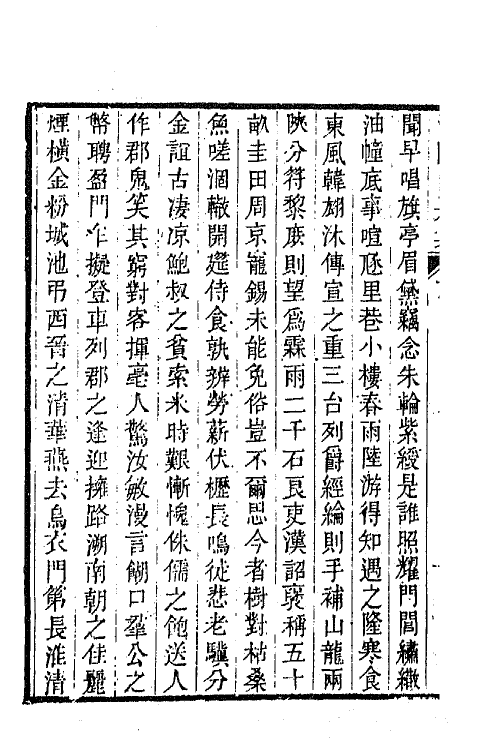 聞早唱旗亭眉黛竊念朱輪紫綬是誰照耀門閭繡繖
油幢底事喧豗里巷小樓春雨陸游得知遇之隆寒食
東風韓翃沐傳宣之重三台列爵經綸則手補山龍兩
陝分符黎庶則望爲霖雨二千石良吏漢詔襃稱五十
畝圭田周京寵錫未能免俗豈不爾思今者樹對枯桑
魚嗟涸轍開筵侍食孰辨勞薪伏櫪長鳴徒悲老驥分
金誼古凄凉鮑叔之貧索米時艱慚愧侏儒之飽送人
作郡鬼笑其窮對客揮毫人驚汝敏漫言餬口羣公之
幣聘盈門乍擬登車列郡之逢迎擁路溯南朝之佳麗
煙橫金粉城池弔西晉之清華燕去烏衣門第長淮清